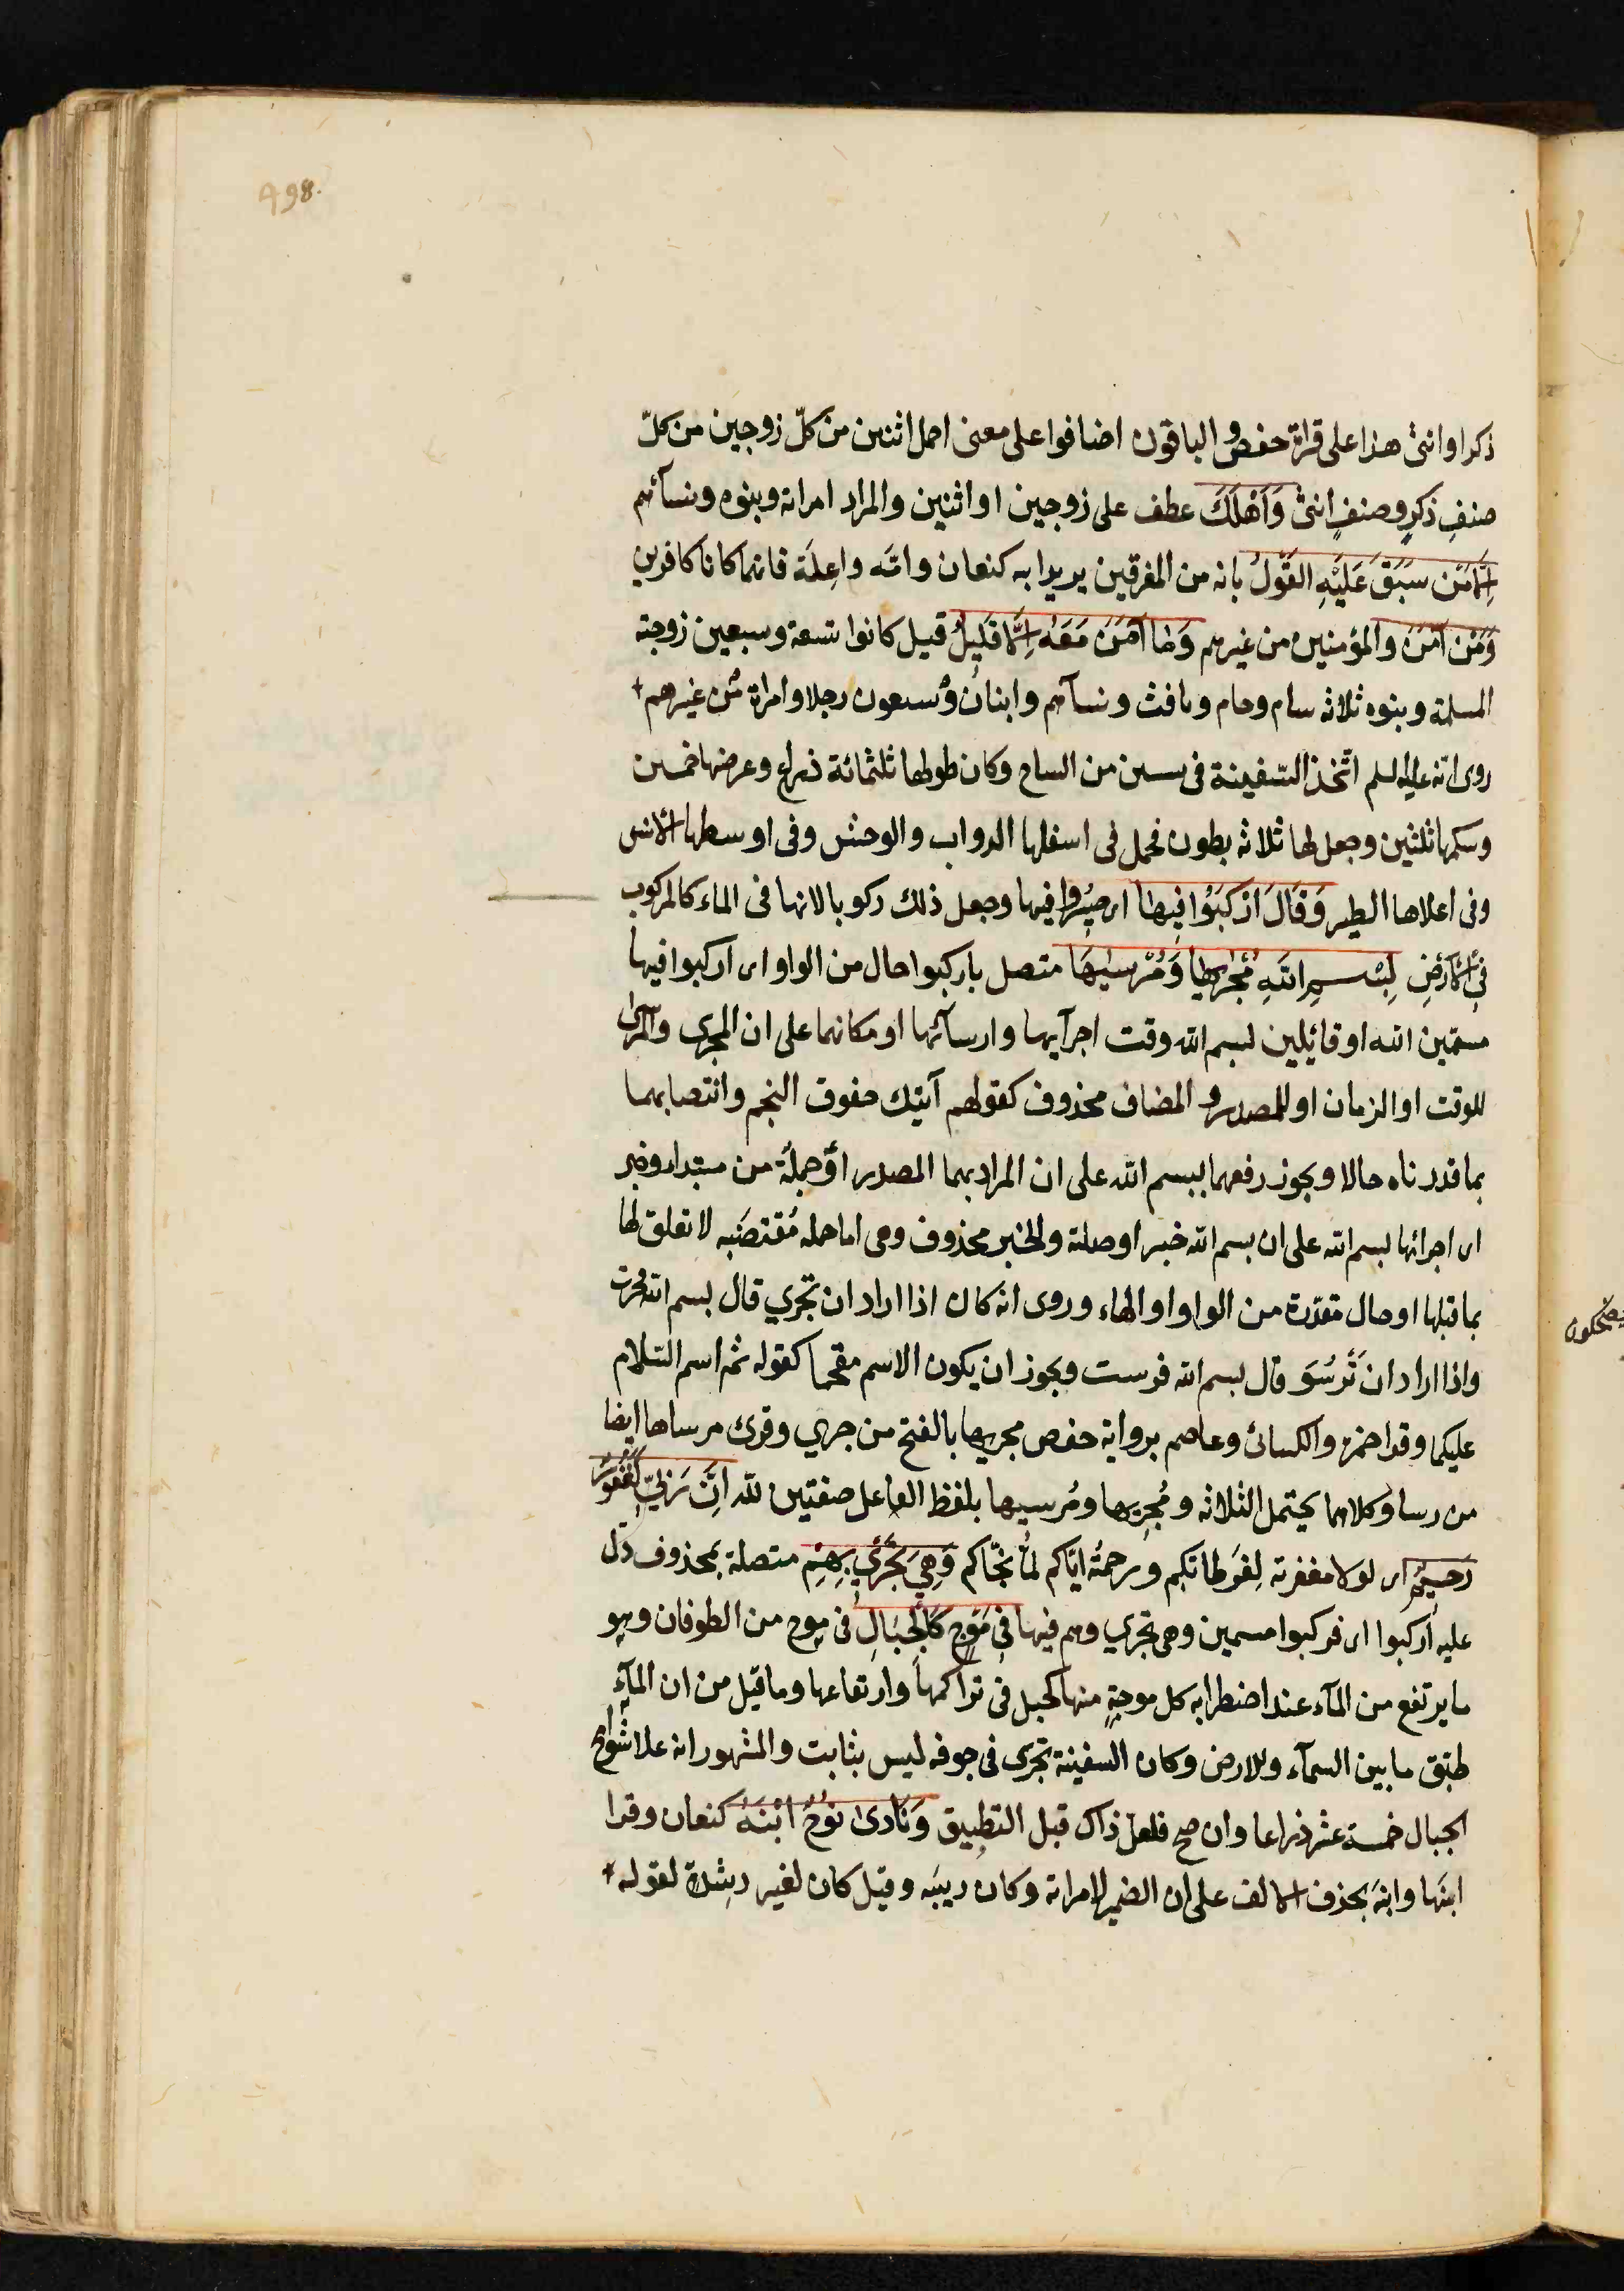 498.
ذكرا وانثى هذا على قراة حفص والباقون اضافوا على معنى احمل اثنين من كلّ زوجين من كلّ
صنفِ ذكرٍ وصنفٍ انثى وَاَهْلَكَ عطف على زوجين او اثنين والمراد امراته وبنوه ونسآئهم
اِلَّا مَنْ سَبَقَ عَلَيْهِ القَوْلُ بانه من المغرقين يريد ابه كنعان وامّه واعِلَة فانهما كانا كافرين
وَمَنْ اٰمَنَ والمؤمنين من غيرهم وَمَا اٰمَنَ مَعَهُ اِلَّا قَلِيْلٌ قيل كانوا تسعة وسبعين زوجته
المسلمة وبنوه ثلاثه سام وحام ويافث ونسآهم واثنان وسبعون رجلا وامراة من غيرهم
روى انه عليه السلم اتّخذ السّفينة فى سنتين من الساج وكان طولها ثلثمائة ذراع وعرضها خمسين
وسمكها ثلثين وجعل لها ثلاثه بطون فحمل فى اسفلها الدواب والوحش وفى اوسطها الانس
وفى اعلاها الطير وَقَالَ ارْكَبُوْا فِيهَا اى صِيْرُوا فيها وجعل ذلك ركوبا لانها فى الماء كالمركوب
فِى الاَرْضِ بِسْمِ اللهِ مُجْرٰيهَا وَمُرْسٰيهَا متصل باركبوا حال من الواو اى اركبوا فيها
مسمّين الله او قائلين بسم الله وقت اجرآيها وارسآئها او مكانهما على ان المجرى والمرسى
للوقت او الزمان او للمصدر و المضاف محذوف كقولهم آتيك خفوق النجم وانتصابهما
بما قدرناه حالا ويجوز رفعهما ببسم الله على ان المراد بهما المصدر او جملة من مبتداء وخبر
اى اجرائها بسم الله على ان بسم الله خبر او صلة والخبر محذوف وهى اما جمله مُقْتضَبه لا تعلق لها
بما قبلها او حال مقدّرة من الواو او الهاء وروى انه كان اذا اراد ان تجري قال بسم الله فجرت
واذا اراد ان تَرسُوَ قال بسم الله فرست ويجوز ان يكون الاسم مقحما كقوله ثم اسم السّلام
عليكما وقرا حمزة والكسائ وعاصم برواية حفص مجريها بالفتح من جري وقرئ مرساها ايضا
من رسا وكلاهما يحتمل الثلاثه ومُجرِيها ومُرسيها بلفظ الفاعل صفتين لله اِنَّ رَبِّى لَغَفُورٌ
رَحِيْمٌ اى لولا مغفرته لِفَرَطاتكم ورحمتُه ايّاكم لما نجّاكم وَهِىَ تَجْرِي بِهِمْ متصلة بمحذوف دَلّ
عليه اركبوا اى فركبوا مسمين وهى تجري وهم فيها فِى مَوْجٍ كَالْجِبَالِ فى موج من الطوفان وهو
ما يرتفع من المآء عند اضطرابه كل موجةٍ منها كجبل فى تراكمها وارتفاعها وما قيل من ان المآءِ
طبّق ما بين السمآء والارض وكان السفينة تجرى فى جوفه ليس بثابت والمشهور انه علا شوامخ
الجبال خمسة عشر ذراعا وان صح فلعلّ ذاك قبل التطبيق وَنَادٰى نُوْحُ ابْنَهُ كنعان وقرا
ابنَها وابنَه بحذف الالف على ان الضمير لامراته وكان ربيبَه وقيل كان لغير رِشدة لقوله
يضحكون